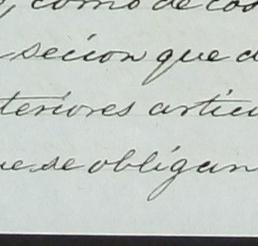 , como de cos
secion que d
teriores articu
ue se obligan